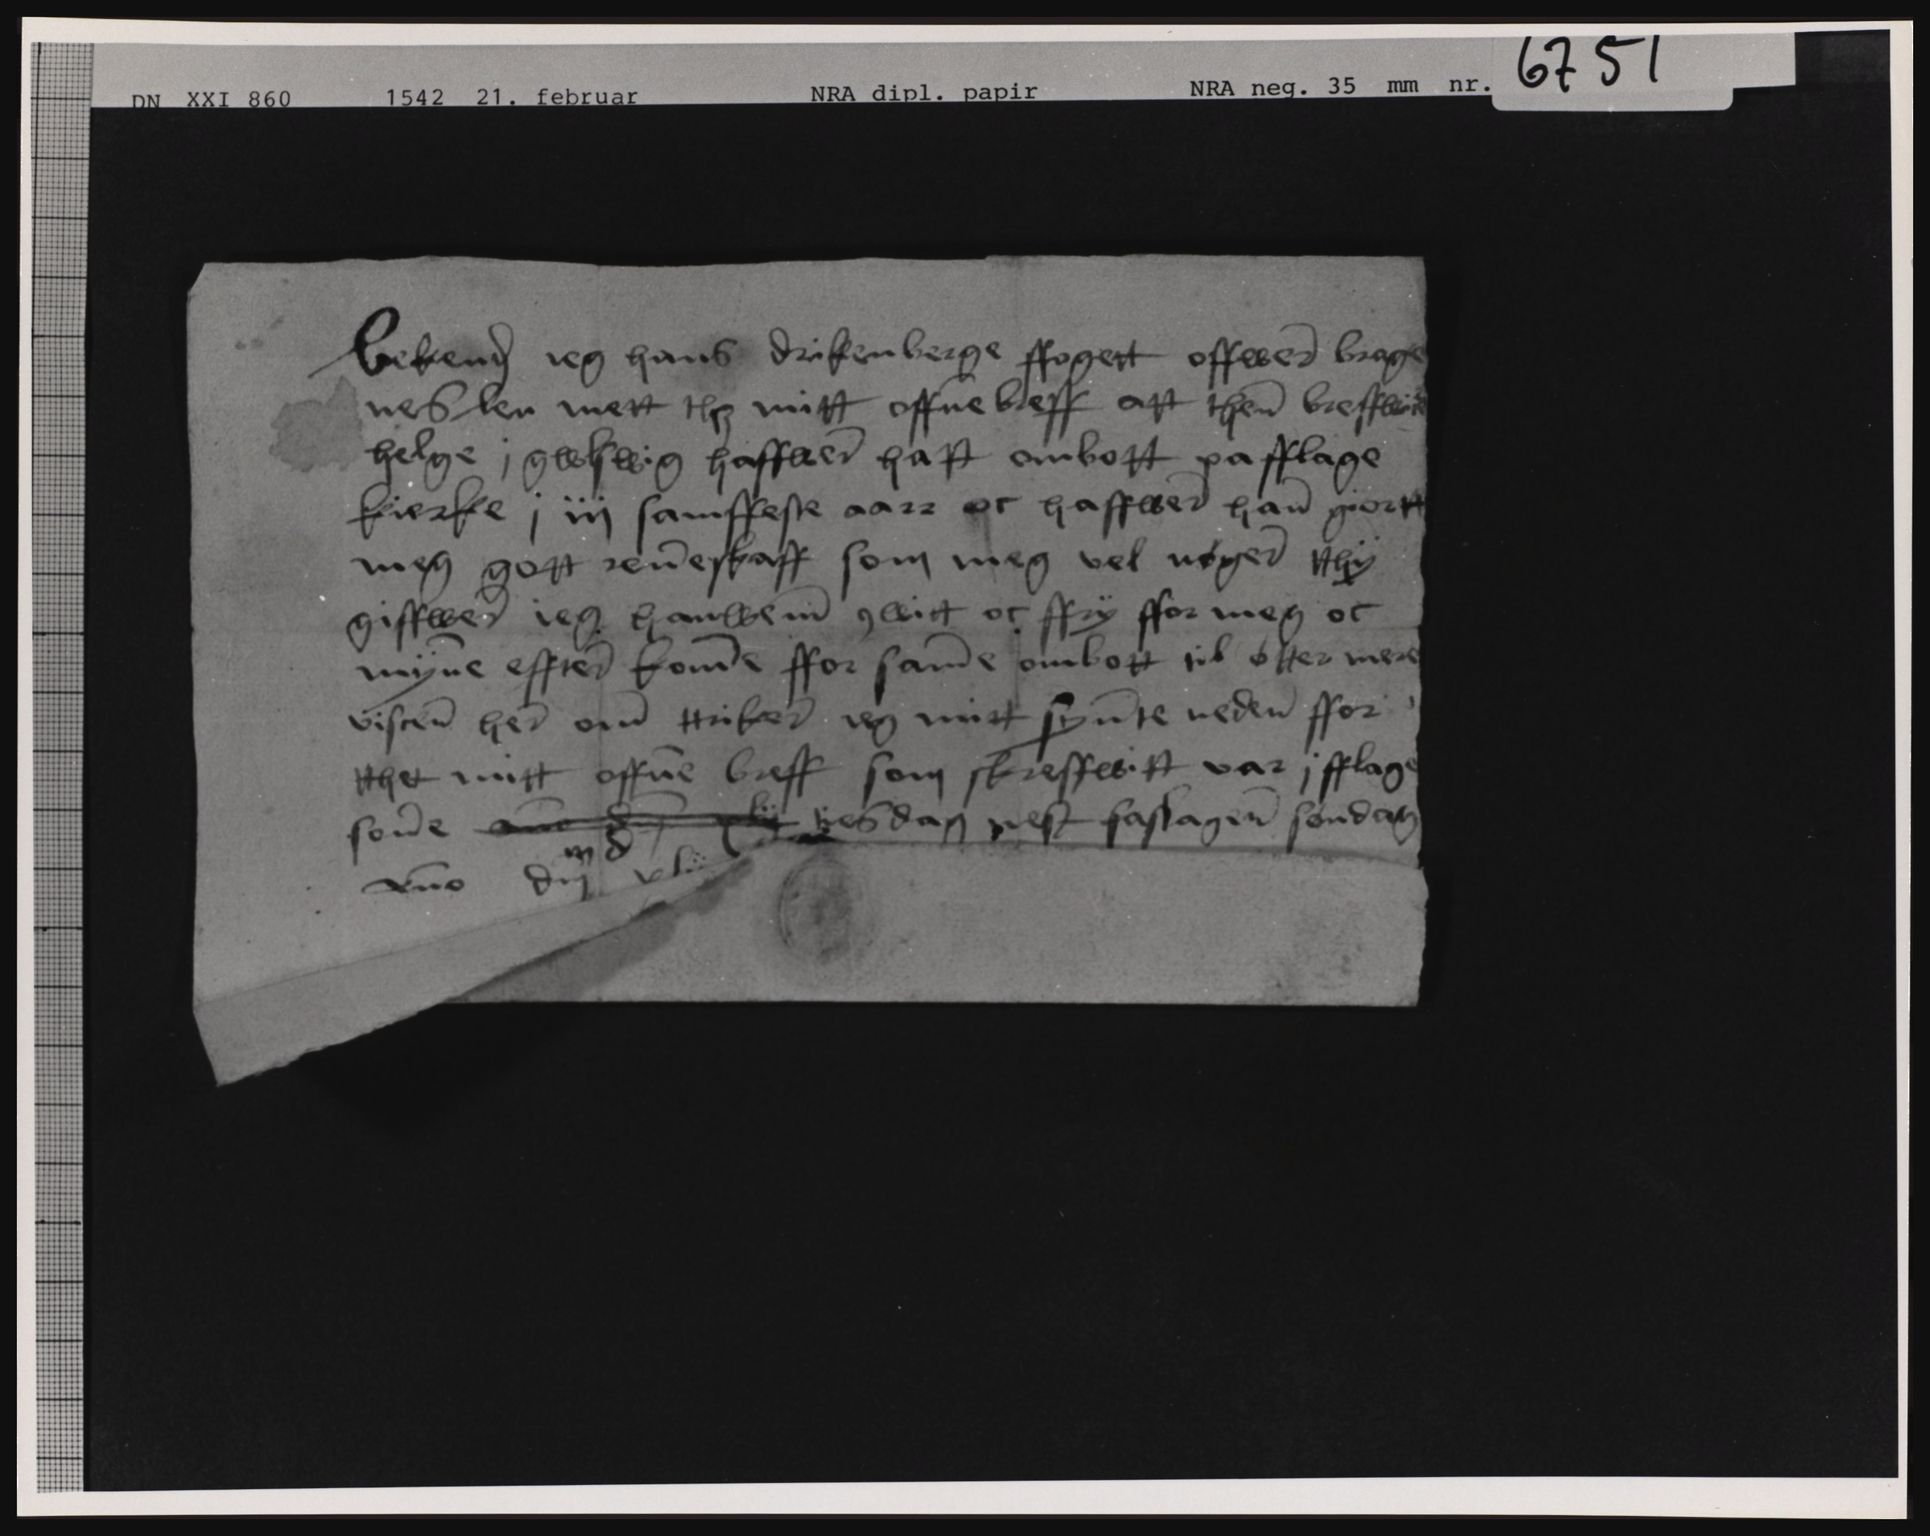 DN XXI 860 1542 21. februar NRA dipl. papir NRA neg. 35 mm nr. 6751
Bekend ieg hans drikenberge ffogett offwer brage
nes len mett thz mitt offne breff att then breffwiser
helge j haffwer hafft ombott pa fflage
kierke j iij samffeste aarr oc haffwer han giortt
meg gott renneskaff som meg vel nøger tthy
giffwer ieg hanwem qwitt oc ffry ffor meg oc
myne effter kome ffor same ombott til ytter mere
viscen her om ttriker ieg mitt syn̄te neden ffor
tthet mitt offne breff som skreffwitt var j fflage
sone tiesdag nest fastagen søndag
Anno dnj md xlij